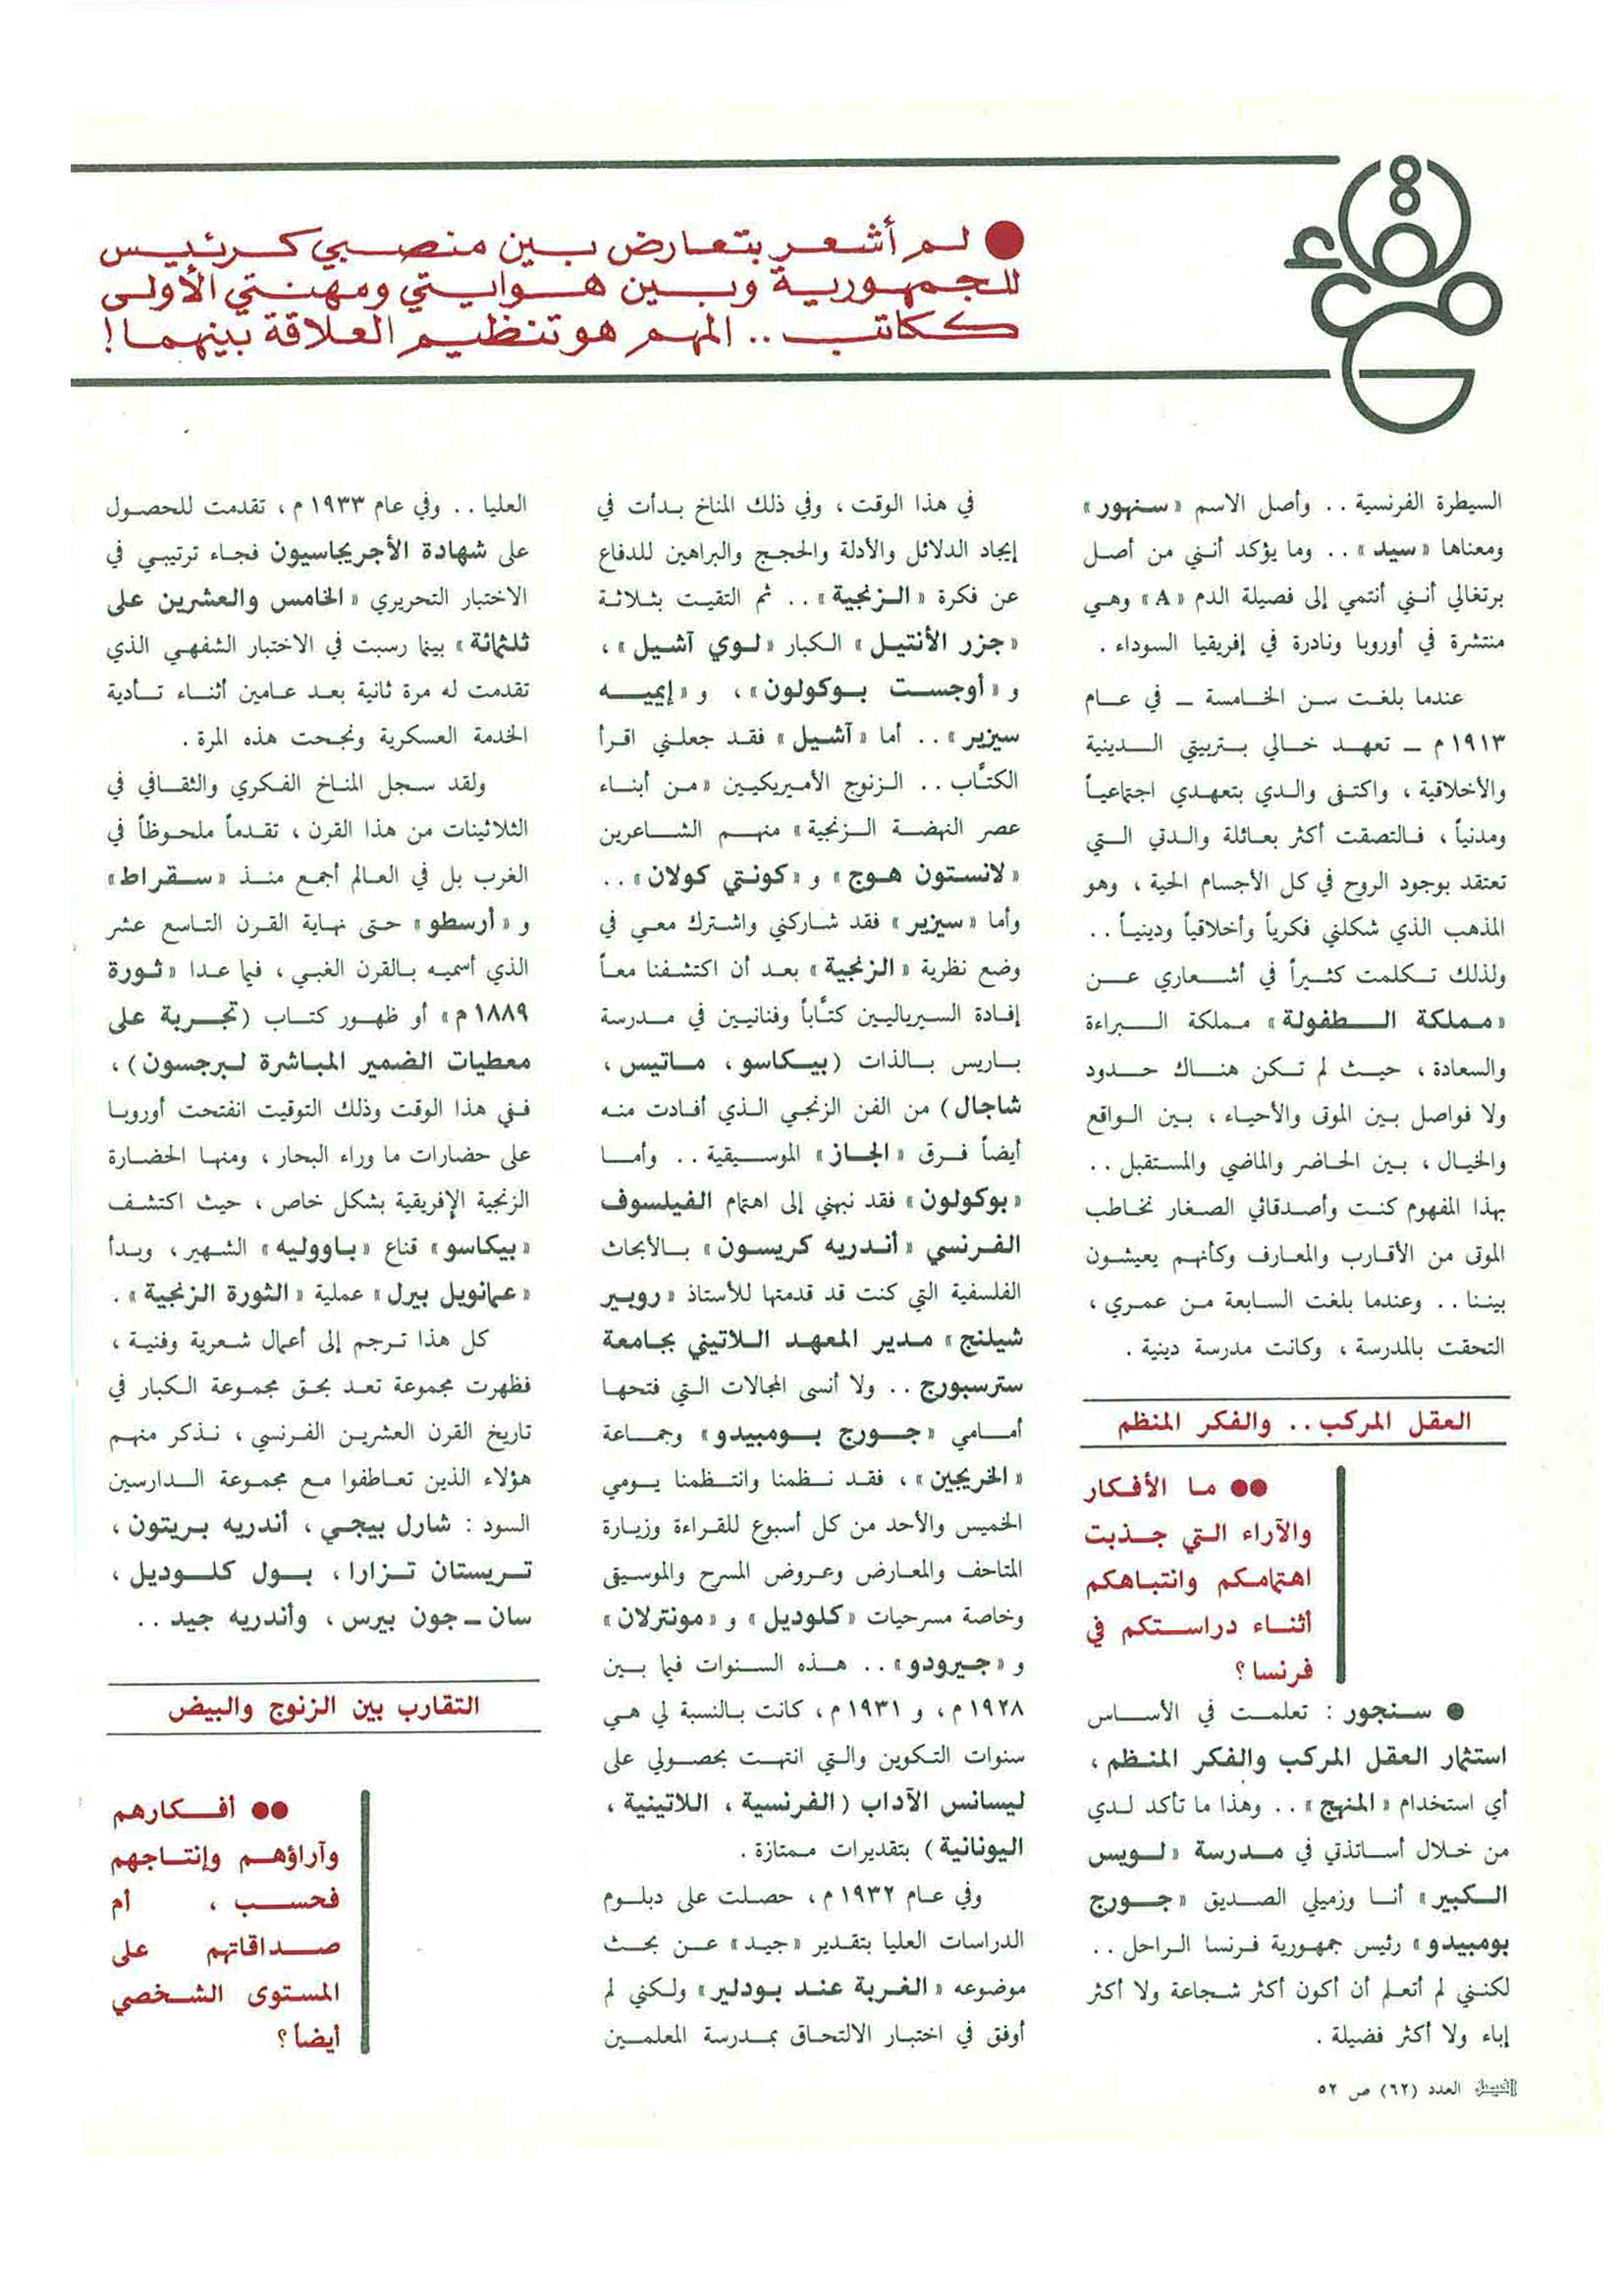 ● لم أشعر بتعارض بين منصبي كرئيس
للجمهورية وبين هوايتي ومهنتي الأولى
ككاتب .. المهم هو تنظيم العلاقة بينهما !
السيطرة الفرنسية .. وأصل الاسم «سنهور»
ومعناها «سيد» .. وما يؤكد أنني من أصل
برتغالي أنني أنتمي إلى فصيلة الدم «A» وهي
منتشرة في أوروبا ونادرة في إفريقيا السوداء .
عندما بلغت سن الخامسة ــ في عام
١٩١٣ م ــ تعهد خالي بتربيتي الدينية
والأخلاقية ، واكتفى والدي بتعهدي اجتماعياً
ومدنياً ، فالتصقت أكثر بعائلة والدتي التي
تعتقد بوجود الروح في كل الأجسام الحية ، وهو
المذهب الذي شكلني فكرياً وأخلاقياً ودينياً ..
ولذلك تكلمت كثيراً في أشعاري عن
«مملكة الطفولة» مملكة البراءة
والسعادة ، حيث لم تكن هناك حدود
ولا فواصل بين الموتى والأحياء ، بين الواقع
والخيال ، بين الحاضر والماضي والمستقبل ..
بهذا المفهوم كنت وأصدقائي الصغار نخاطب
الموتى من الأقارب والمعارف وكأنهم يعيشون
بيننا .. وعندما بلغت السابعة من عمري ،
التحقت بالمدرسة ، وكانت مدرسة دينية .
العقل المركب .. والفكر المنظم
●● ما الأفكار
والآراء التي جذبت
اهتمامكم وانتباهكم
أثناء دراستكم في
فرنسا ؟
● سنجور : تعلمت في الأساس
استثمار العقل المركب والفكر المنظم ،
أي استخدام «المنهج» .. وهذا ما تأكد لدي
من خلال أساتذتي في مدرسة «لويس
الكبير» أنا وزميلي الصديق «جورج
بومبيدو» رئيس جمهورية فرنسا الراحل ..
لكنني لم أتعلم أن أكون أكثر شجاعة ولا أكثر
إباء ولا أكثر فضيلة .
في هذا الوقت ، وفي ذلك المناخ بدأت في
إيجاد الدلائل والأدلة والحجج والبراهين للدفاع
عن فكرة «الزنجية» .. ثم التقيت بثلاثة
«جزر الأنتيل» الكبار «لوي آشيل» ،
و «أوجست بوكولون» ، و «إيميه
سيزير» .. أما «آشيل» فقد جعلني اقرأ
الكتّاب .. الزنوج الأميريكيين «من أبناء
عصر النهضة الزنجية» منهم الشاعرين
«لانستون هوج» و «كونتي كولان» ..
وأما «سيزير» فقد شاركني واشترك معي في
وضع نظرية «الزنجية» بعد أن اكتشفنا معاً
إفادة السيرياليين كتّاباً وفنانيين في مدرسة
باريس بالذات (بيكاسو ، ماتيس ،
شاجال) من الفن الزنجي الذي أفادت منه
أيضاً فرق «الجاز» الموسيقية .. وأما
«بوكولون» فقد نبهني إلى اهتمام الفيلسوف
الفرنسي «أندريه كريسون» بالأبحاث
الفلسفية التي كنت قد قدمتها للأستاذ «روبير
شيلنج» مدير المعهد اللاتيني بجامعة
سترسبورج .. ولا أنسى المجالات التي فتحها
أمامي «جورج بومبيدو» وجماعة
«الخريجين» ، فقد نظمنا وانتظمنا يومي
الخميس والأحد من كل أسبوع للقراءة وزيارة
المتاحف والمعارض وعروض المسرح والموسيقى
وخاصة مسرحيات «كلوديل» و «مونترلان»
و «جيرودو» .. هذه السنوات فيما بين
١٩٢٨ م ، و ١٩٣١ م ، كانت بالنسبة لي هي
سنوات التكوين والتي انتهت بحصولي على
ليسانس الآداب (الفرنسية ، اللاتينية ،
اليونانية) بتقديرات ممتازة .
وفي عام ١٩٣٢ م ، حصلت على دبلوم
الدراسات العليا بتقدير «جيد» عن بحث
موضوعه «الغربة عند بودلير» ولكني لم
أوفق في اختبار الالتحاق بمدرسة المعلمين
العليا .. وفي عام ١٩٣٣ م ، تقدمت للحصول
على شهادة الأجريجاسيون فجاء ترتيبي في
الاختبار التحريري «الخامس والعشرين على
ثلثمائة» بينما رسبت في الاختبار الشفهي الذي
تقدمت له مرة ثانية بعد عامين أثناء تأدية
الخدمة العسكرية ونجحت هذه المرة .
ولقد سجل المناخ الفكري والثقافي في
الثلاثينات من هذا القرن ، تقدماً ملحوظاً في
الغرب بل في العالم أجمع منذ «سقراط»
و «أرسطو» حتى نهاية القرن التاسع عشر
الذي أسميه بالقرن الغبي ، فيما عدا «ثورة
١٨٨٩ م» أو ظهور كتاب (تجربة على
معطيات الضمير المباشرة لبرجسون) ،
ففي هذا الوقت وذلك التوقيت انفتحت أوروبا
على حضارات ما وراء البحار ، ومنها الحضارة
الزنجية الإفريقية بشكل خاص ، حيث اكتشف
«بيكاسو» قناع «باووليه» الشهير ، وبدأ
«عمانويل بيرل» عملية «الثورة الزنجية» .
كل هذا ترجم إلى أعمال شعرية وفنية ،
فظهرت مجموعة تعد بحق مجموعة الكبار في
تاريخ القرن العشرين الفرنسي ، نذكر منهم
هؤلاء الذين تعاطفوا مع مجموعة الدارسين
السود : شارل بيجي ، أندريه بريتون ،
تريستان تزارا ، بول كلوديل ،
سان ــ جون بيرس ، وأندريه جيد ..
التقارب بين الزنوج والبيض
●● أفكارهم
وآراؤهم وإنتاجهم
فحسب ، أم
صداقاتهم على
المستوى الشخصي
أيضاً ؟
الفيصل العدد (٦٢) ص ٥٢